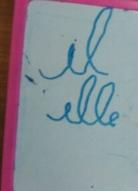 il
elle